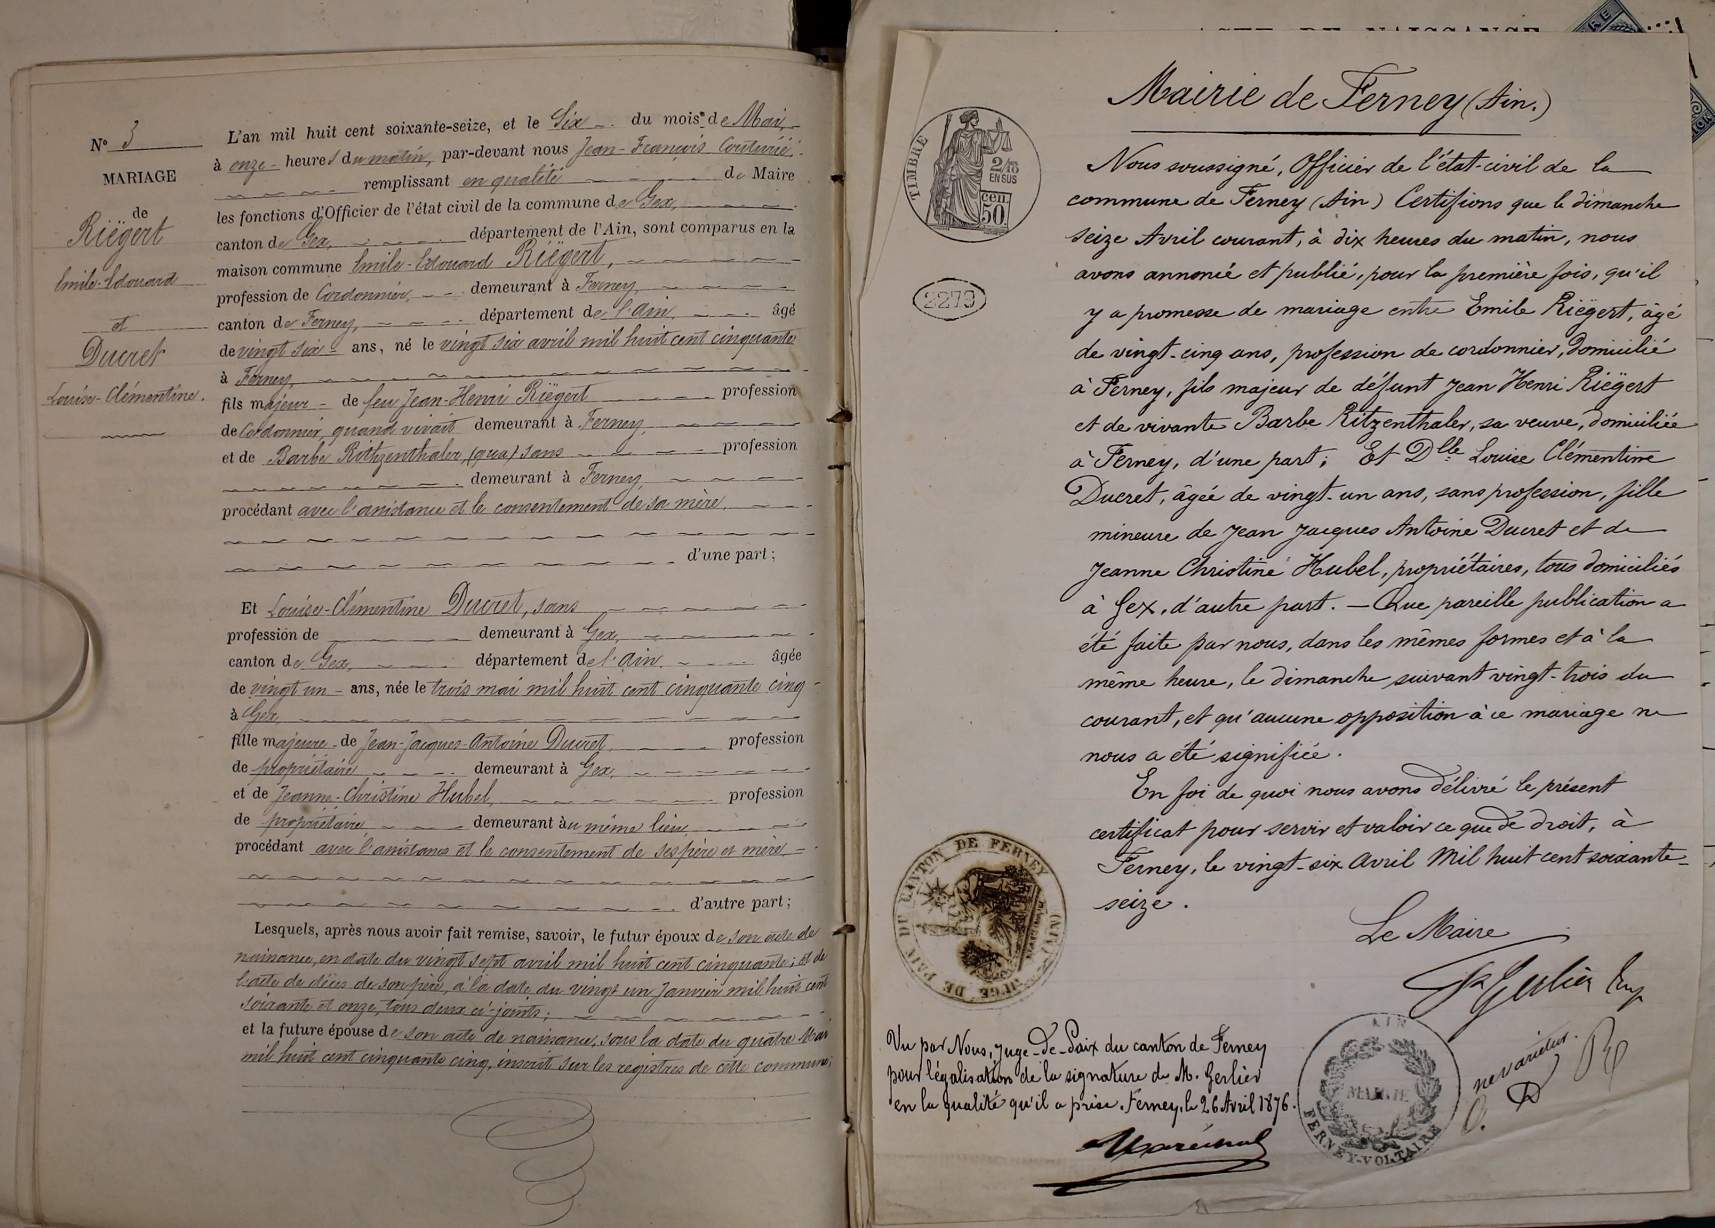 N° 3
MARIAGE
de
Riëgert
Emile-Edouard
et
Ducret
Louise-Clémentine.
L'an mil huit cent soixante-seize, et le Six du mois de Mai,
à onze heures du matin, par-devant nous Jean-François
remplissant en qualité de Maire
les fonctions d'Officier de l'état civil de la commune de Gex,
canton de Gex, département de l'Ain, sont comparus en la
maison commune Emile-Edouard Riëgert,
profession de Cordonnier, demeurant à Ferney,
canton de Ferney, département de l'Ain, âgé
de vingt six ans, né le vingt six avril mil huit cent cinquante
à Ferney,
fils majeur de feu Jean-Henri Riëgert profession
de Cordonnier, quand vivait demeurant à Ferney,
et de Barbe Ritzenthaler, (qua) sans profession
demeurant à Ferney,
procédant avec l'assistance et le consentement de sa mère,
d'une part;
Et Louise-Clémentine Ducret, sans
profession de demeurant à Gex,
canton de Gex, département de l'Ain, âgée
de vingt un ans, née le trois mai mil huit cent cinquante cinq
à Gex,
fille majeure de Jean-Jacques-Antoine Ducret, profession
de propriétaire demeurant à Gex,
et de Jeanne-Christine Hubel, profession
de propriétaire demeurant au même lieu
procédant avec l'assistance et le consentement de ses père et mère
d'autre part;
Lesquels, après nous avoir fait remise, savoir, le futur époux de son acte de
naissance, en date du vingt sept avril mil huit cent cinquante; et de
l'acte de décès de son père, à la date du vingt un Janvier mil huit cent
soixante et onze, tous deux ci-joints;
et la future épouse de son acte de naissance, sous la date du quatre Mai
mil huit cent cinquante cinq, inscrit sur les registres de cette commune;
ACTE DE NAISSANCE
Mairie de Ferney (Ain.)
TIMBRE
2/10
EN SUS
50 cen.
2273
Nous soussigné, Officier de l'état-civil de la
commune de Ferney (Ain) Certifions que le dimanche
seize Avril courant, à dix heures du matin, nous
avons annoncé et publié, pour la première fois, qu'il
y a promesse de mariage entre Emile Riëgert, âgé
de vingt-cinq ans, profession de cordonnier, domicilié
à Ferney, fils majeur de défunt Jean Henri Riëgert
et de vivante Barbe Ritzenthaler, sa veuve, domiciliée
à Ferney, d'une part; Et Dlle Louise Clémentine
Ducret, âgée de vingt-un ans, sans profession, fille
mineure de Jean Jacques Antoine Ducret et de
Jeanne Christine Hubel, propriétaires, tous domiciliés
à Gex, d'autre part. — Que pareille publication a
été faite par nous, dans les mêmes formes et à la
même heure, le dimanche suivant vingt-trois du
courant, et qu'aucune opposition à ce mariage ne
nous a été signifiée.
En foi de quoi nous avons délivré le présent
certificat pour servir et valoir ce que de droit, à
Ferney, le vingt-six Avril Mil huit cent soixante-
seize.
Le Maire
Gerlier
JUGE DE PAIX DU CANTON DE FERNEY (AIN)
Vu par Nous, Juge-de-Paix du canton de Ferney
pour légalisation de la signature de M. Gerlier
en la qualité qu'il a prise. Ferney, le 26 Avril 1876.
AIN
MAIRIE
FERNEY-VOLTAIRE
ne varietur.